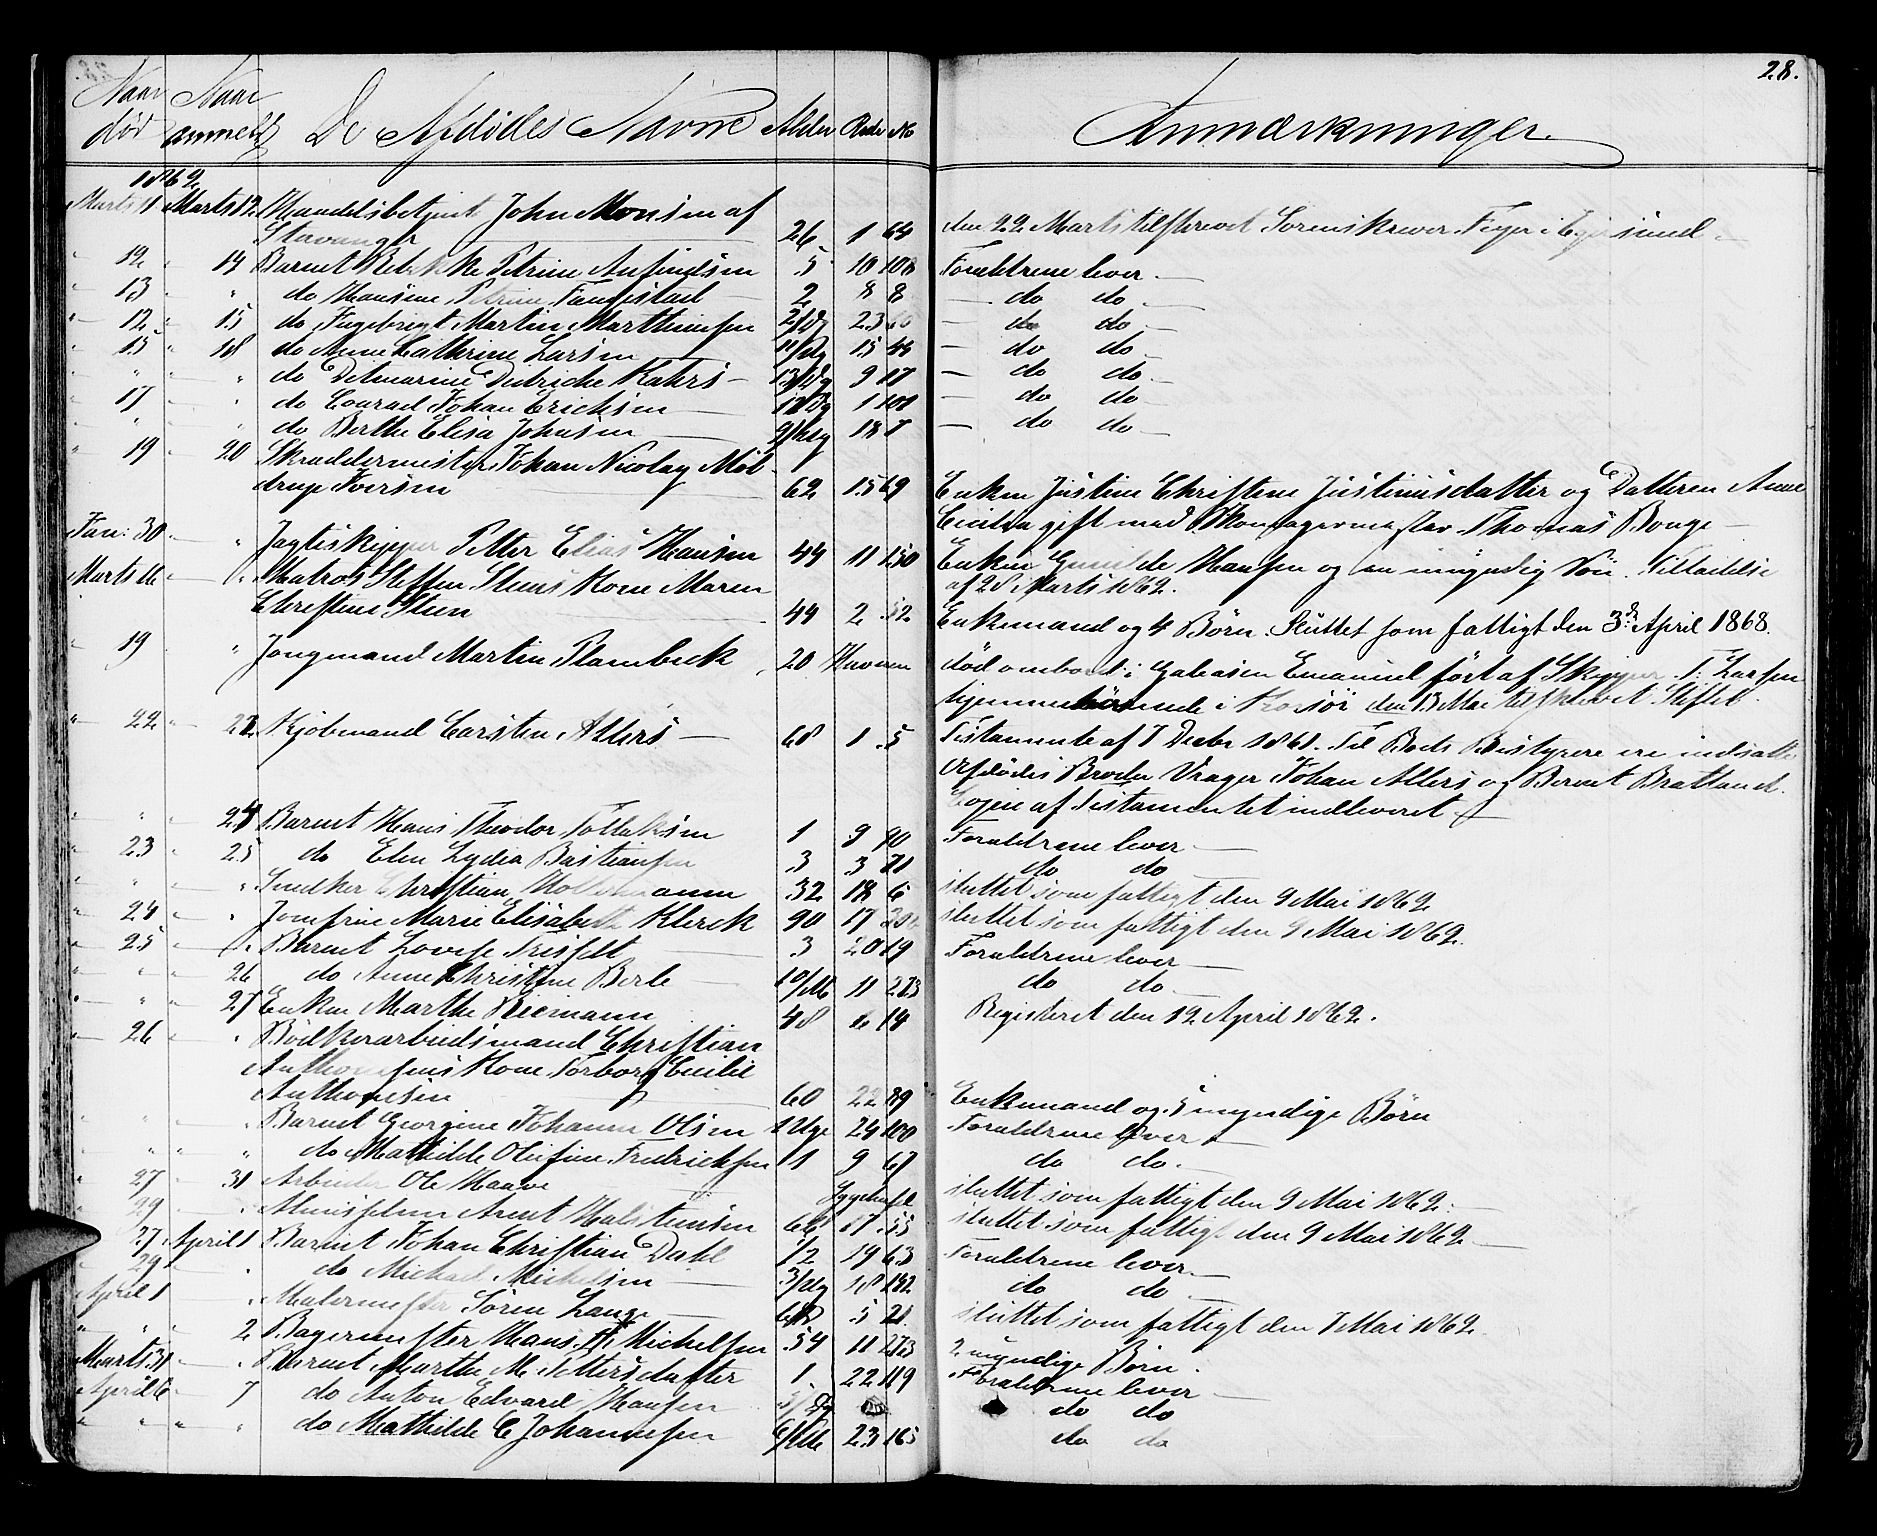 28.
Naar død Naar anmeldt De Afdødes Navne Alder Rode No Anmærkninger.
1862
Marts 11 Marts 12 Handelsbetjent John Monsen af
Stavanger 26 1 64 den 22 Marts tilskrevet Sorenskriver Feyer i Egersund
" 12 " 14 Barnet Rebekke Petrine Anfindsen 5 10 108 Forældrene lever
" 13 " " do Hansine Petrine 2 8 8 do do
" 12 " 15 do Ingebrigt Martin Marthinsen 2/Dg 23 do do
" 15 " 18 do Anne Cathrine Larsen 11/Ug 15 46 do do
" " " " do Detmarine Didriche Kahrs 13/Dg 9 17 do do
" 17 " do Conrad Johan Ericksen 12/Dg 1 101 do do
" " " do Berthe Elisa Johnsen 9/Ug 18 7 do do
" 19 " 20 Skræddermester Johan Nicolay Møl-
drup Iversen 62 15 69 Enken Justine Christine Justinusdatter og Datteren Anne
Cecilia gift med Skomagermester Thomas Bonge
Jan: 30 " Jagtskipper Petter Elias Hansen 44 11 150 Enken Gunilde Hansen og en umyndig Søn. Tilladelse
af 28 Marts 1862.
Marts 16 " Matros Steffen Steens Kone Maren
Christine Steen 44 2 52 Enkemand og 4 Børn. Sluttet som fattigt den 3d. April 1868.
19 " Jongmand Martin Plambeck 20 Havnen død ombord i Galeasen Emanuel ført af Skipper T. Larsen
hjemmehørende i Korsør den 13 Mai tilskrevet Stiftet
" 22 " 22 Kjøbmand Carsten Ahlers 68 1 5 Testamente af 7 Decbr 1861. Til Boets Bestyrere ere indsatte
Afdødes Broder Vrager Johan Ahlers og Berent Bratland.
Copie af Testamentet indleveret
" " 24 Barnet Hans Theodor Tollaksen 1 9 90 Forældrene lever
" 23 " 25 do Elen Lydia Bastiansen 3 3 21 do do
" " " Snedker Christian 32 18 6 sluttet som fattigt den 9 Mai 1862
" 24 " " Jomfrue Marie Elisabeth Klerck 90 17 sluttet som fattigt den 9 Mai 1862.
" 25 " Barnet Lovise 3 20 19 Forældrene lever
" " " 26 do Anne Christine Berle 10/M 11 273 do do
" " " 27 Enken Marthe Riemann 48 14 Registeret den 12 April 1862.
" 26 " " Bødkerarbeidsmand Christian
Anthonisens Kone Torborg Cecilie
Anthonisen 60 22 89 Enkemand og 5 myndige Børn
" " Barnet Georgine Johanne Olsen 1 Uge 24 100 Forældrene lever
" " " do Mathilde Olufine Fredricksen 11 9 67 do do
" 27 31 Arbeider Ole Haave Sygehuset sluttet som fattigt den 9 Mai 1862.
29 " Arent Halsteinsen 66 17 55 sluttet som fattigt den 9 Mai 1862
27 April 1 Barnet Johan Christian Dahl 1/2 19 63 Forældrene lever
29 " do Michael Michelsen 3/Ug 18 182 do do
April 1 " Malermester Søren Lange 68 5 21 sluttet som fattigt den 7 Mai 1862
" " 2 Bagermester Hans H Michelsen 54 11 273 2 myndige Børn.
Marts 31 " Barnet Marthe M. Pettersdatter 1 22 119 Forældrene lever
April 6 7 do Anton Edvard Hansen do do
" " " do Mathilde C Johannesen 6/M 23 165 do do